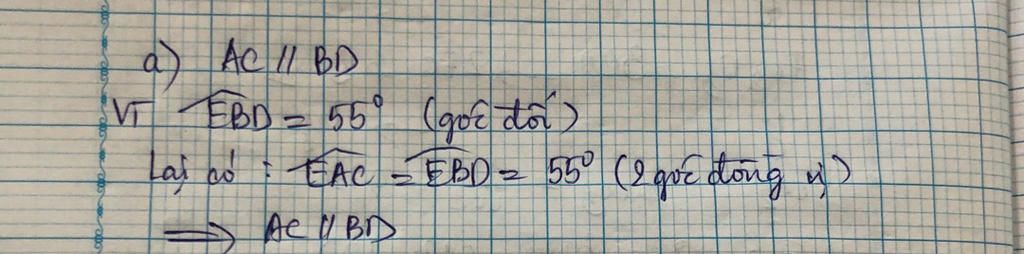 a) AC // BD
Vì EBD = 55° (góc đối)
Lại có : EAC = EBD = 55° (2 góc đồng vị)
=> AC // BD